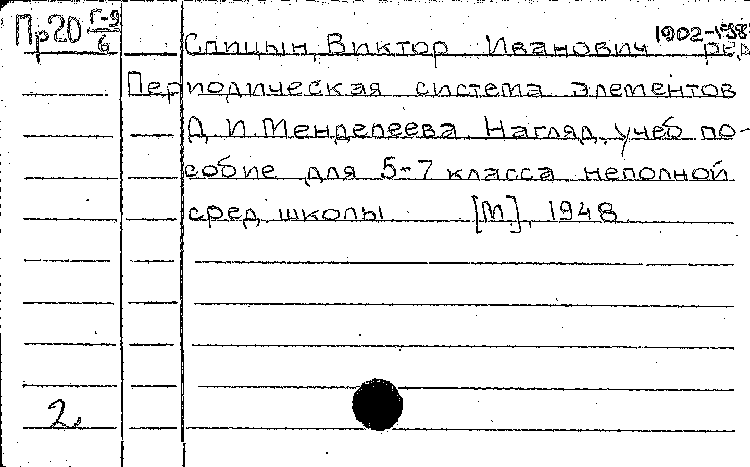 Пр20 Г-9/6
Спицын, Виктор Иванович 1902- ред.
Периодическая система элементов
Д.И. Менделеева. Нагляд. учеб по-
собие для 5-7 класса неполной
сред. школы [М.], 1948
2.